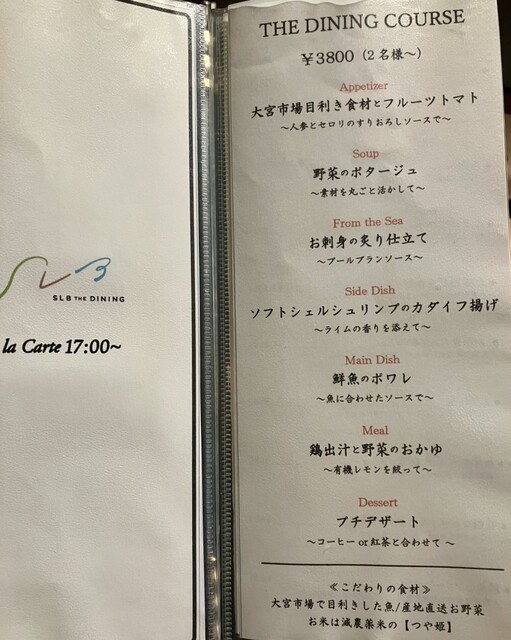 SLB THE DINING
la Carte 17:00~
THE DINING COURSE
¥3800（2名様〜）
Appetizer
大宮市場目利き食材とフルーツトマト
〜人参とセロリのすりおろしソースで〜
Soup
野菜のポタージュ
〜素材を丸ごと活かして〜
From the Sea
お刺身の炙り仕立て
〜ブールブランソース〜
Side Dish
ソフトシェルシュリンプのカダイフ揚げ
〜ライムの香りを添えて〜
Main Dish
鮮魚のポワレ
〜魚に合わせたソースで〜
Meal
鶏出汁と野菜のおかゆ
〜有機レモンを絞って〜
Dessert
プチデザート
〜コーヒー or 紅茶と合わせて 〜
≪こだわりの食材≫
大宮市場で目利きした魚/産地直送お野菜
お米は減農薬米の【つや姫】